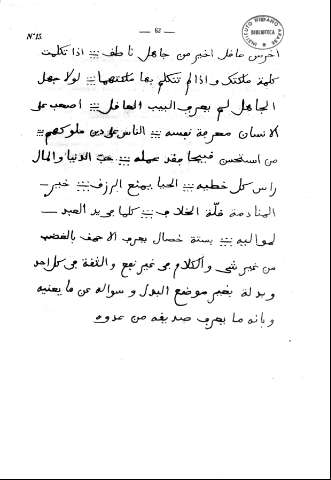 — 62 —
N.º 15.
INSTITUTO HISPANO ARABE
BIBLIOTECA
اخرس عاقل اخير من جاهل ناطق ؞ اذا تكلمت
كلمة ملكتك واذا لم تتكلم بها ملكتهما ؞ لولا جهل
الجاهل لم يعرف البيب العاقل ؞ اصعب على
الانسان معرفة نفسه ؞ الناس على دين ملوكهم ؞
من استحسن قبيحا فقد عمله ؞ حب الدنيا والمال
راس كل خطيه ؞ الحيا يمنع الرزق ؞ خير
المنادمة قلّة الخلاف ؞ كلها يريد العبد
لمواليه ؞ بستة خصال يعرف الاحمق بالغضب
من غير شى والكلام فى غير نفع والثقة فى كل احد
وبدله بغير موضع البدل وسواله عن ما يعنيه
وبانه ما يعرف صديقه من عدوه